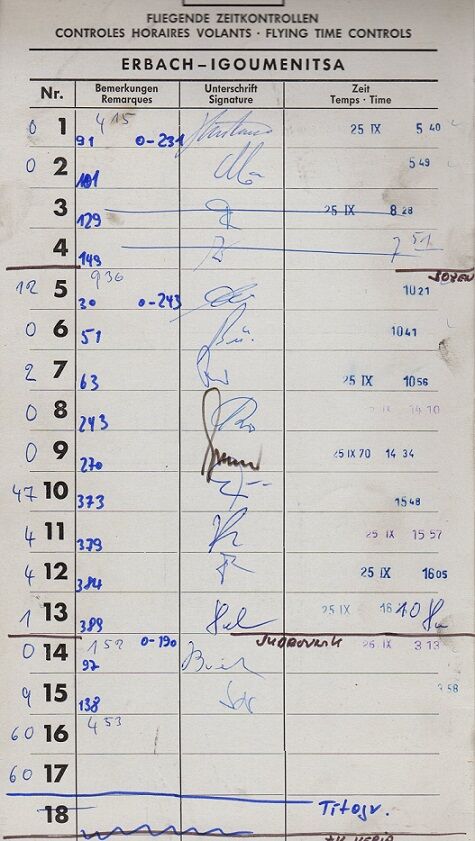 FLIEGENDE ZEITKONTROLLEN
CONTROLES HORAIRES VOLANTS · FLYING TIME CONTROLS
ERBACH – IGOUMENITSA
Nr. Bemerkungen Unterschrift Zeit
Remarques Signature Temps · Time
0 1 4 15 91 0-231 25 IX 5 40
0 2 101 5 49
3 129 25 IX 8 28
4 149 7 51
12 5 9 30 30 0-243 10 21
0 6 51 10 41
2 7 63 25 IX 10 56
0 8 243 IX 14 10
0 9 270 25 IX 70 14 34
47 10 373 15 48
4 11 379 25 IX 15 57
4 12 384 25 IX 16 05
1 13 389 25 IX 16 10
0 14 1 52 97 0-190 26 IX 3 13
9 15 138 3 58
60 16 4 53
60 17
18 Titogr.